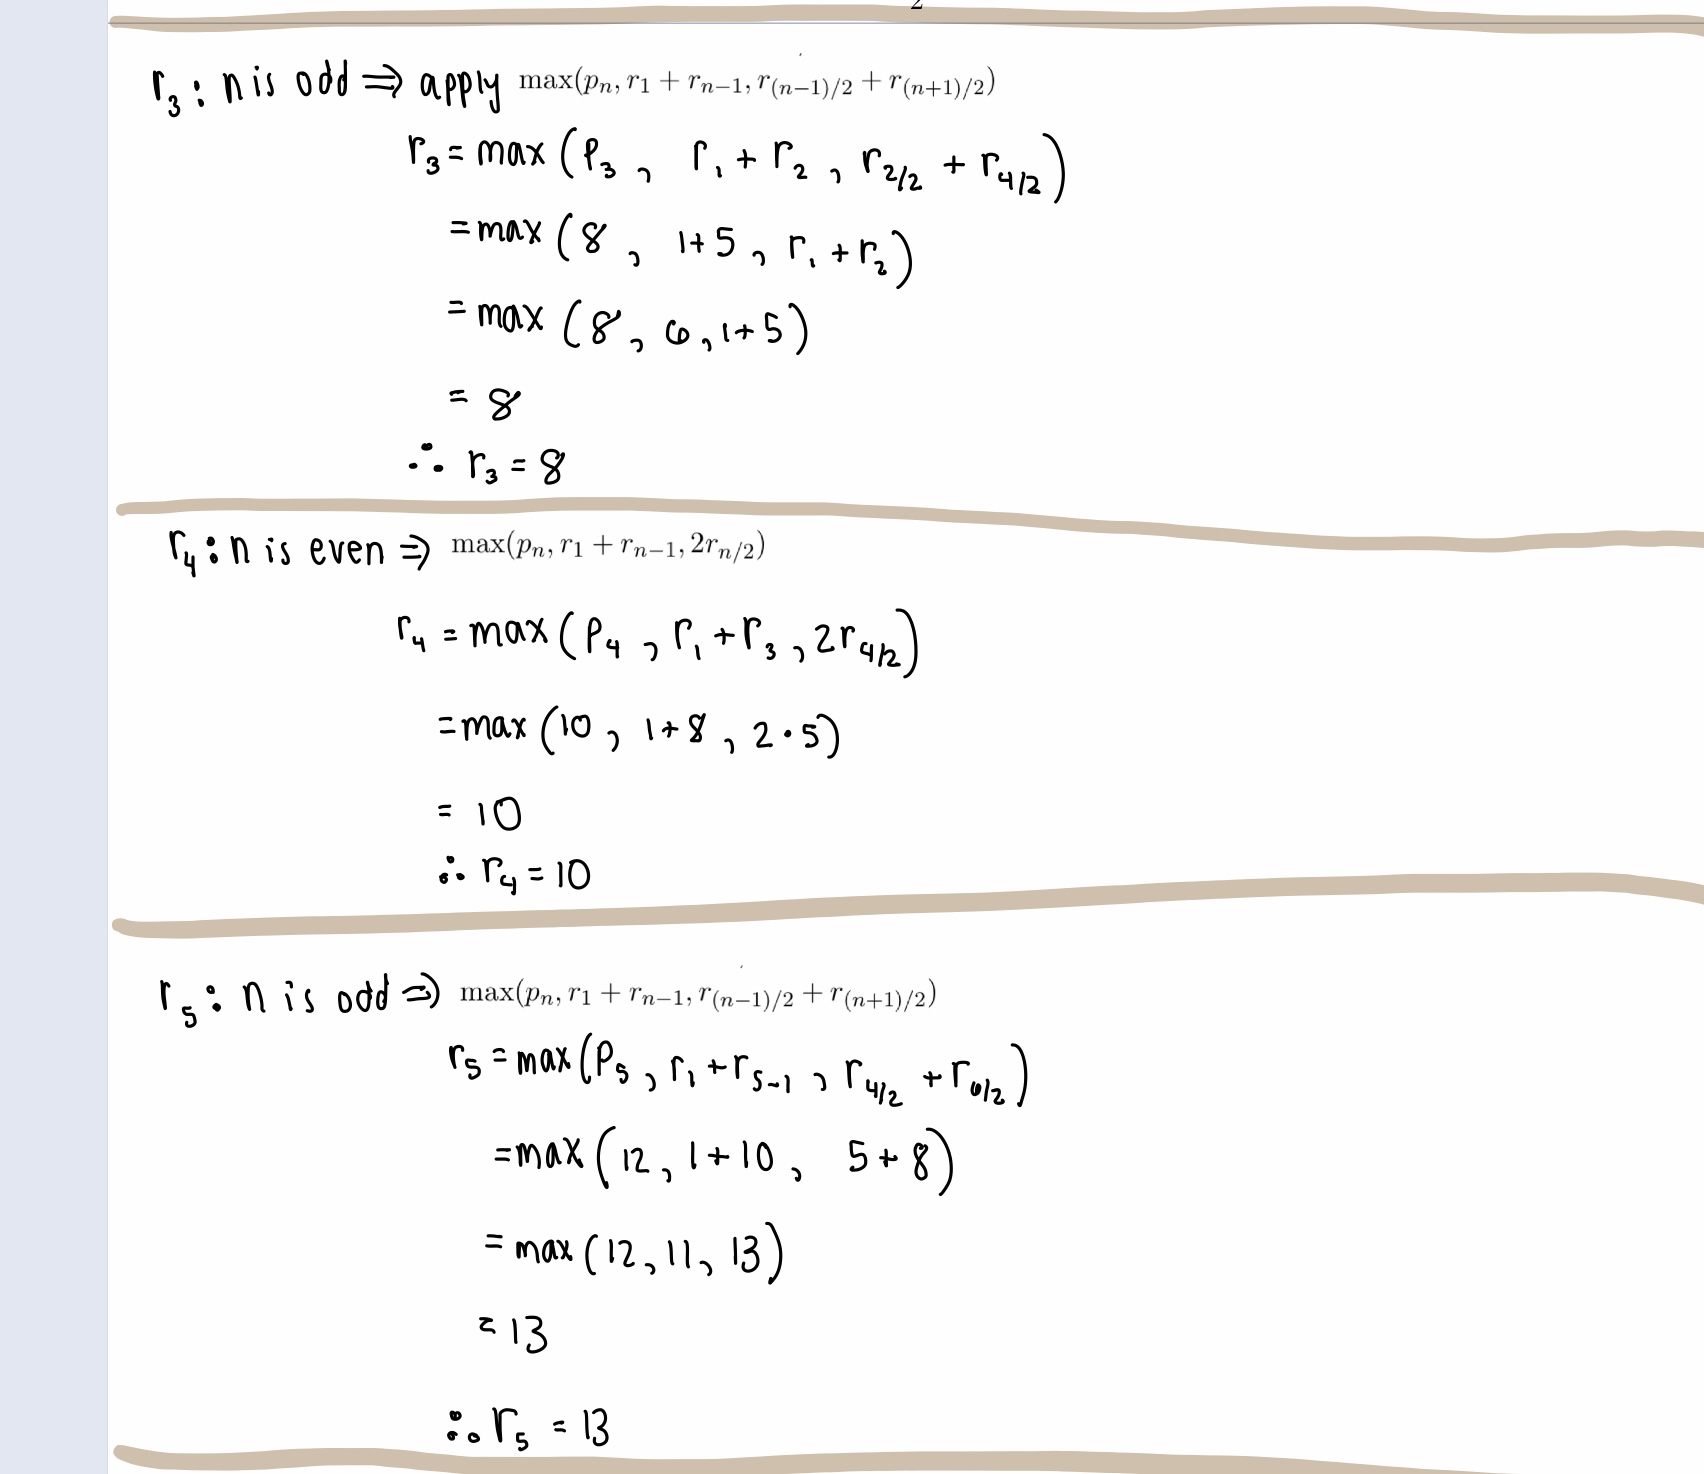 2
r₃ : n is odd ⇒ apply max(pₙ, r₁ + rₙ₋₁, r₍ₙ₋₁₎/₂ + r₍ₙ₊₁₎/₂)
r₃ = max (P₃ , r₁ + r₂ , r_{2/2} + r_{4/2})
= max (8 , 1+5 , r₁ + r₂)
= max (8 , 6 , 1+5)
= 8
∴ r₃ = 8
r₄ : n is even ⇒ max(pₙ, r₁ + rₙ₋₁, 2r_{n/2})
r₄ = max (P₄ , r₁ + r₃ , 2r_{4/2})
= max (10 , 1+8 , 2 · 5)
= 10
∴ r₄ = 10
r₅ : n is odd ⇒ max(pₙ, r₁ + rₙ₋₁, r₍ₙ₋₁₎/₂ + r₍ₙ₊₁₎/₂)
r₅ = max (P₅ , r₁ + r₅₋₁ , r_{4/2} + r_{6/2})
= max (12 , 1+10 , 5+8)
= max (12 , 11 , 13)
= 13
∴ r₅ = 13